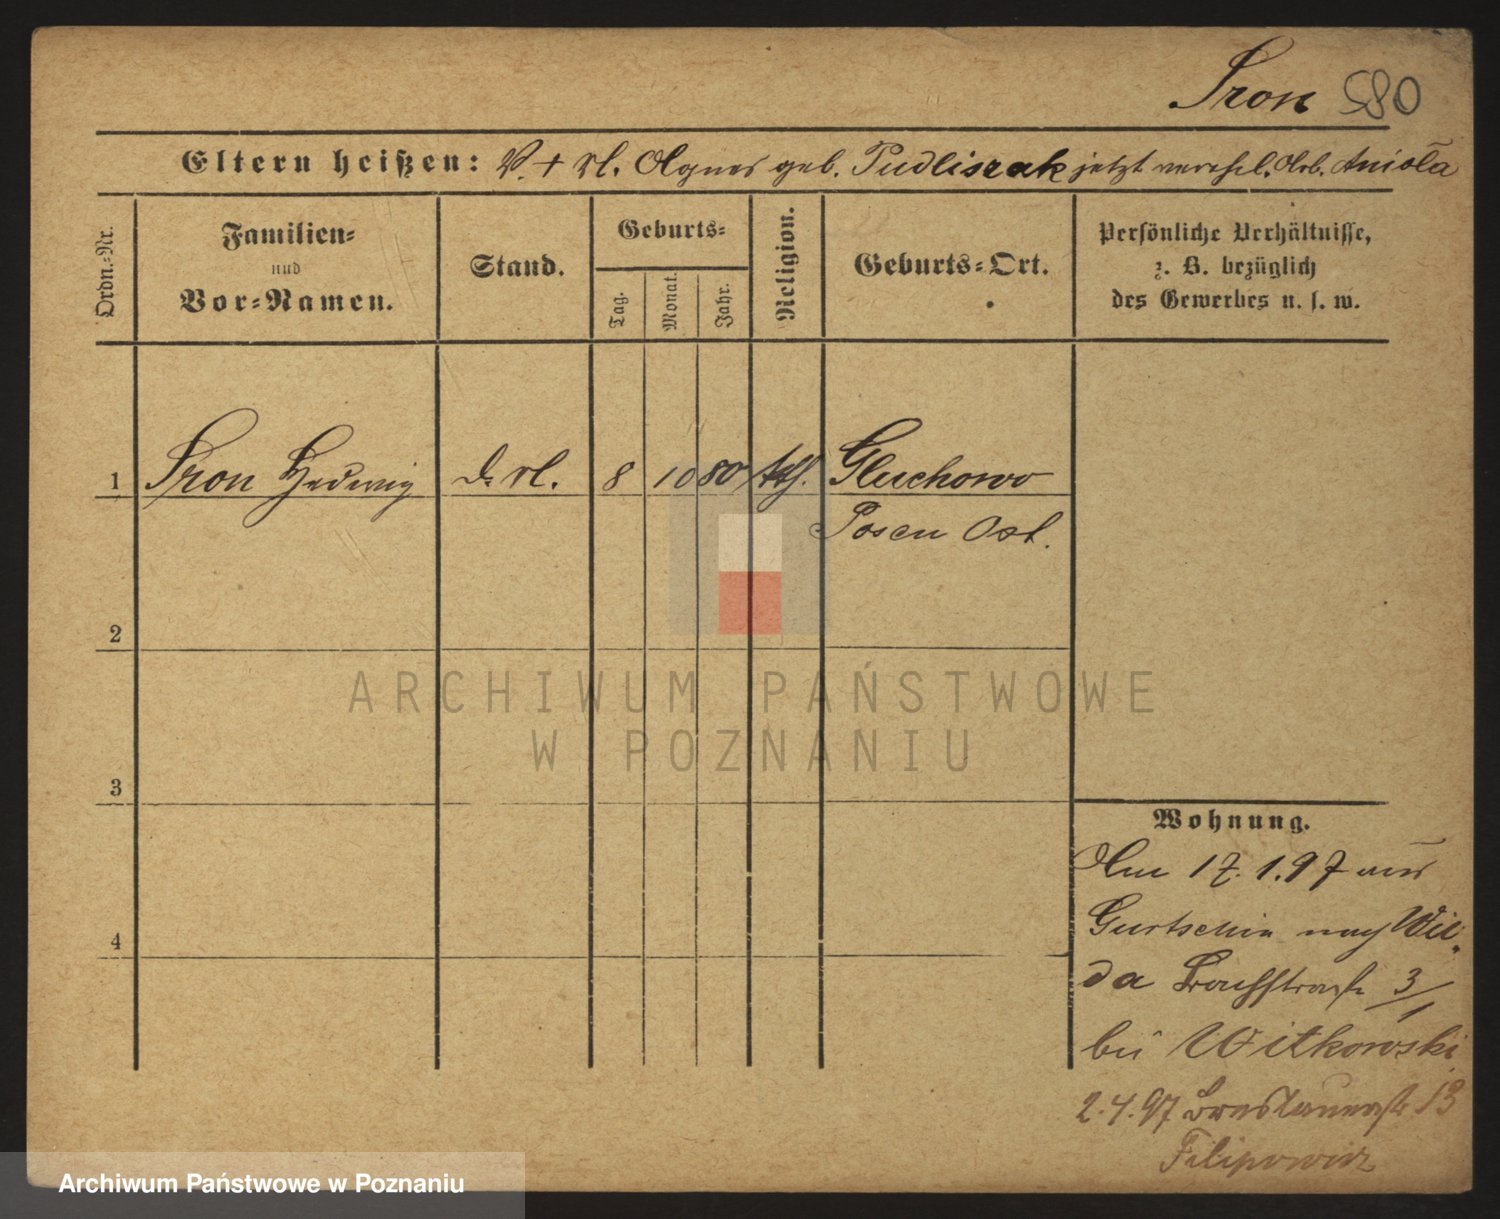 Sron 580
Eltern heißen: V. + M. Agnes geb. Pudliszak jetzt verehel. Arb. Aniola
Ordn.-Nr.
Familien-
und
Vor-Namen.
Stand.
Geburts-
Tag.
Monat.
Jahr.
Religion.
Geburts-Ort.
Persönliche Verhältnisse,
z. B. bezüglich
des Gewerbes u. s. w.
1 Sron Hedwig 8 10 80 kth. Gluchowo
Posen Ost.
2
ARCHIWUM PAŃSTWOWE
W POZNANIU
3
Wohnung.
Am 17.1.97 aus
Gurtschin nach Wil-
4
da 3/1
bei Witkowski
2.4.97 Breslauerstr 13
Filipowicz
Archiwum Państwowe w Poznaniu